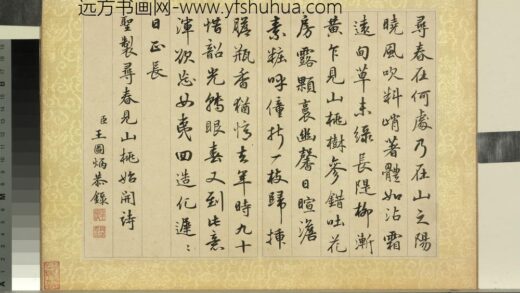 远方书画网-www.yfshuhua.com
尋春在何處乃在山之陽
曉風吹料峭著體如沾霜
遠甸草未綠長隄柳漸
黃乍見山桃樹參錯吐花
房露顆裛幽馨日暄澹
素粧呼僮折一枝歸揷
膽瓶香猶憶去年時九十
惜韶光皭眼春又到比意
渾欲忘如夷回造化遲〻
日正長
聖製尋春見山桃始開詩
臣王圖炳恭錄